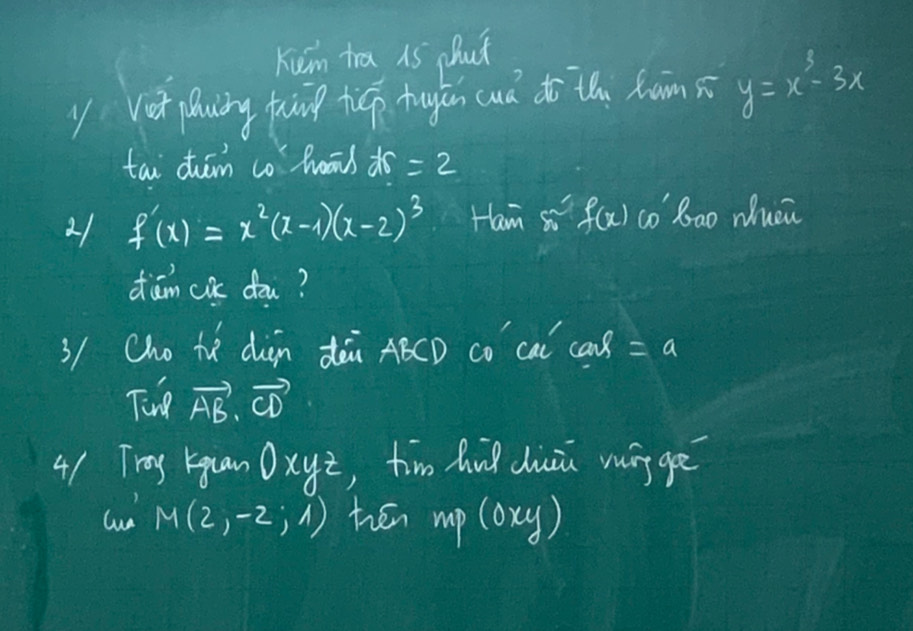 Kiểm tra 15 phút
1/ Viết phương trình tiếp tuyến của đồ thị hàm số y = x³ - 3x
tại điểm có hoành độ = 2
2/ f'(x) = x²(x-1)(x-2)³. Hàm số f(x) có bao nhiêu
điểm cực đại ?
3/ Cho tứ diện đều ABCD có các cạnh = a
Tính \overrightarrow{AB}. \overrightarrow{CD}
4/ Trong kgian Oxyz, tìm hình chiếu vuông góc
của M(2;-2;1) trên mp (Oxy)